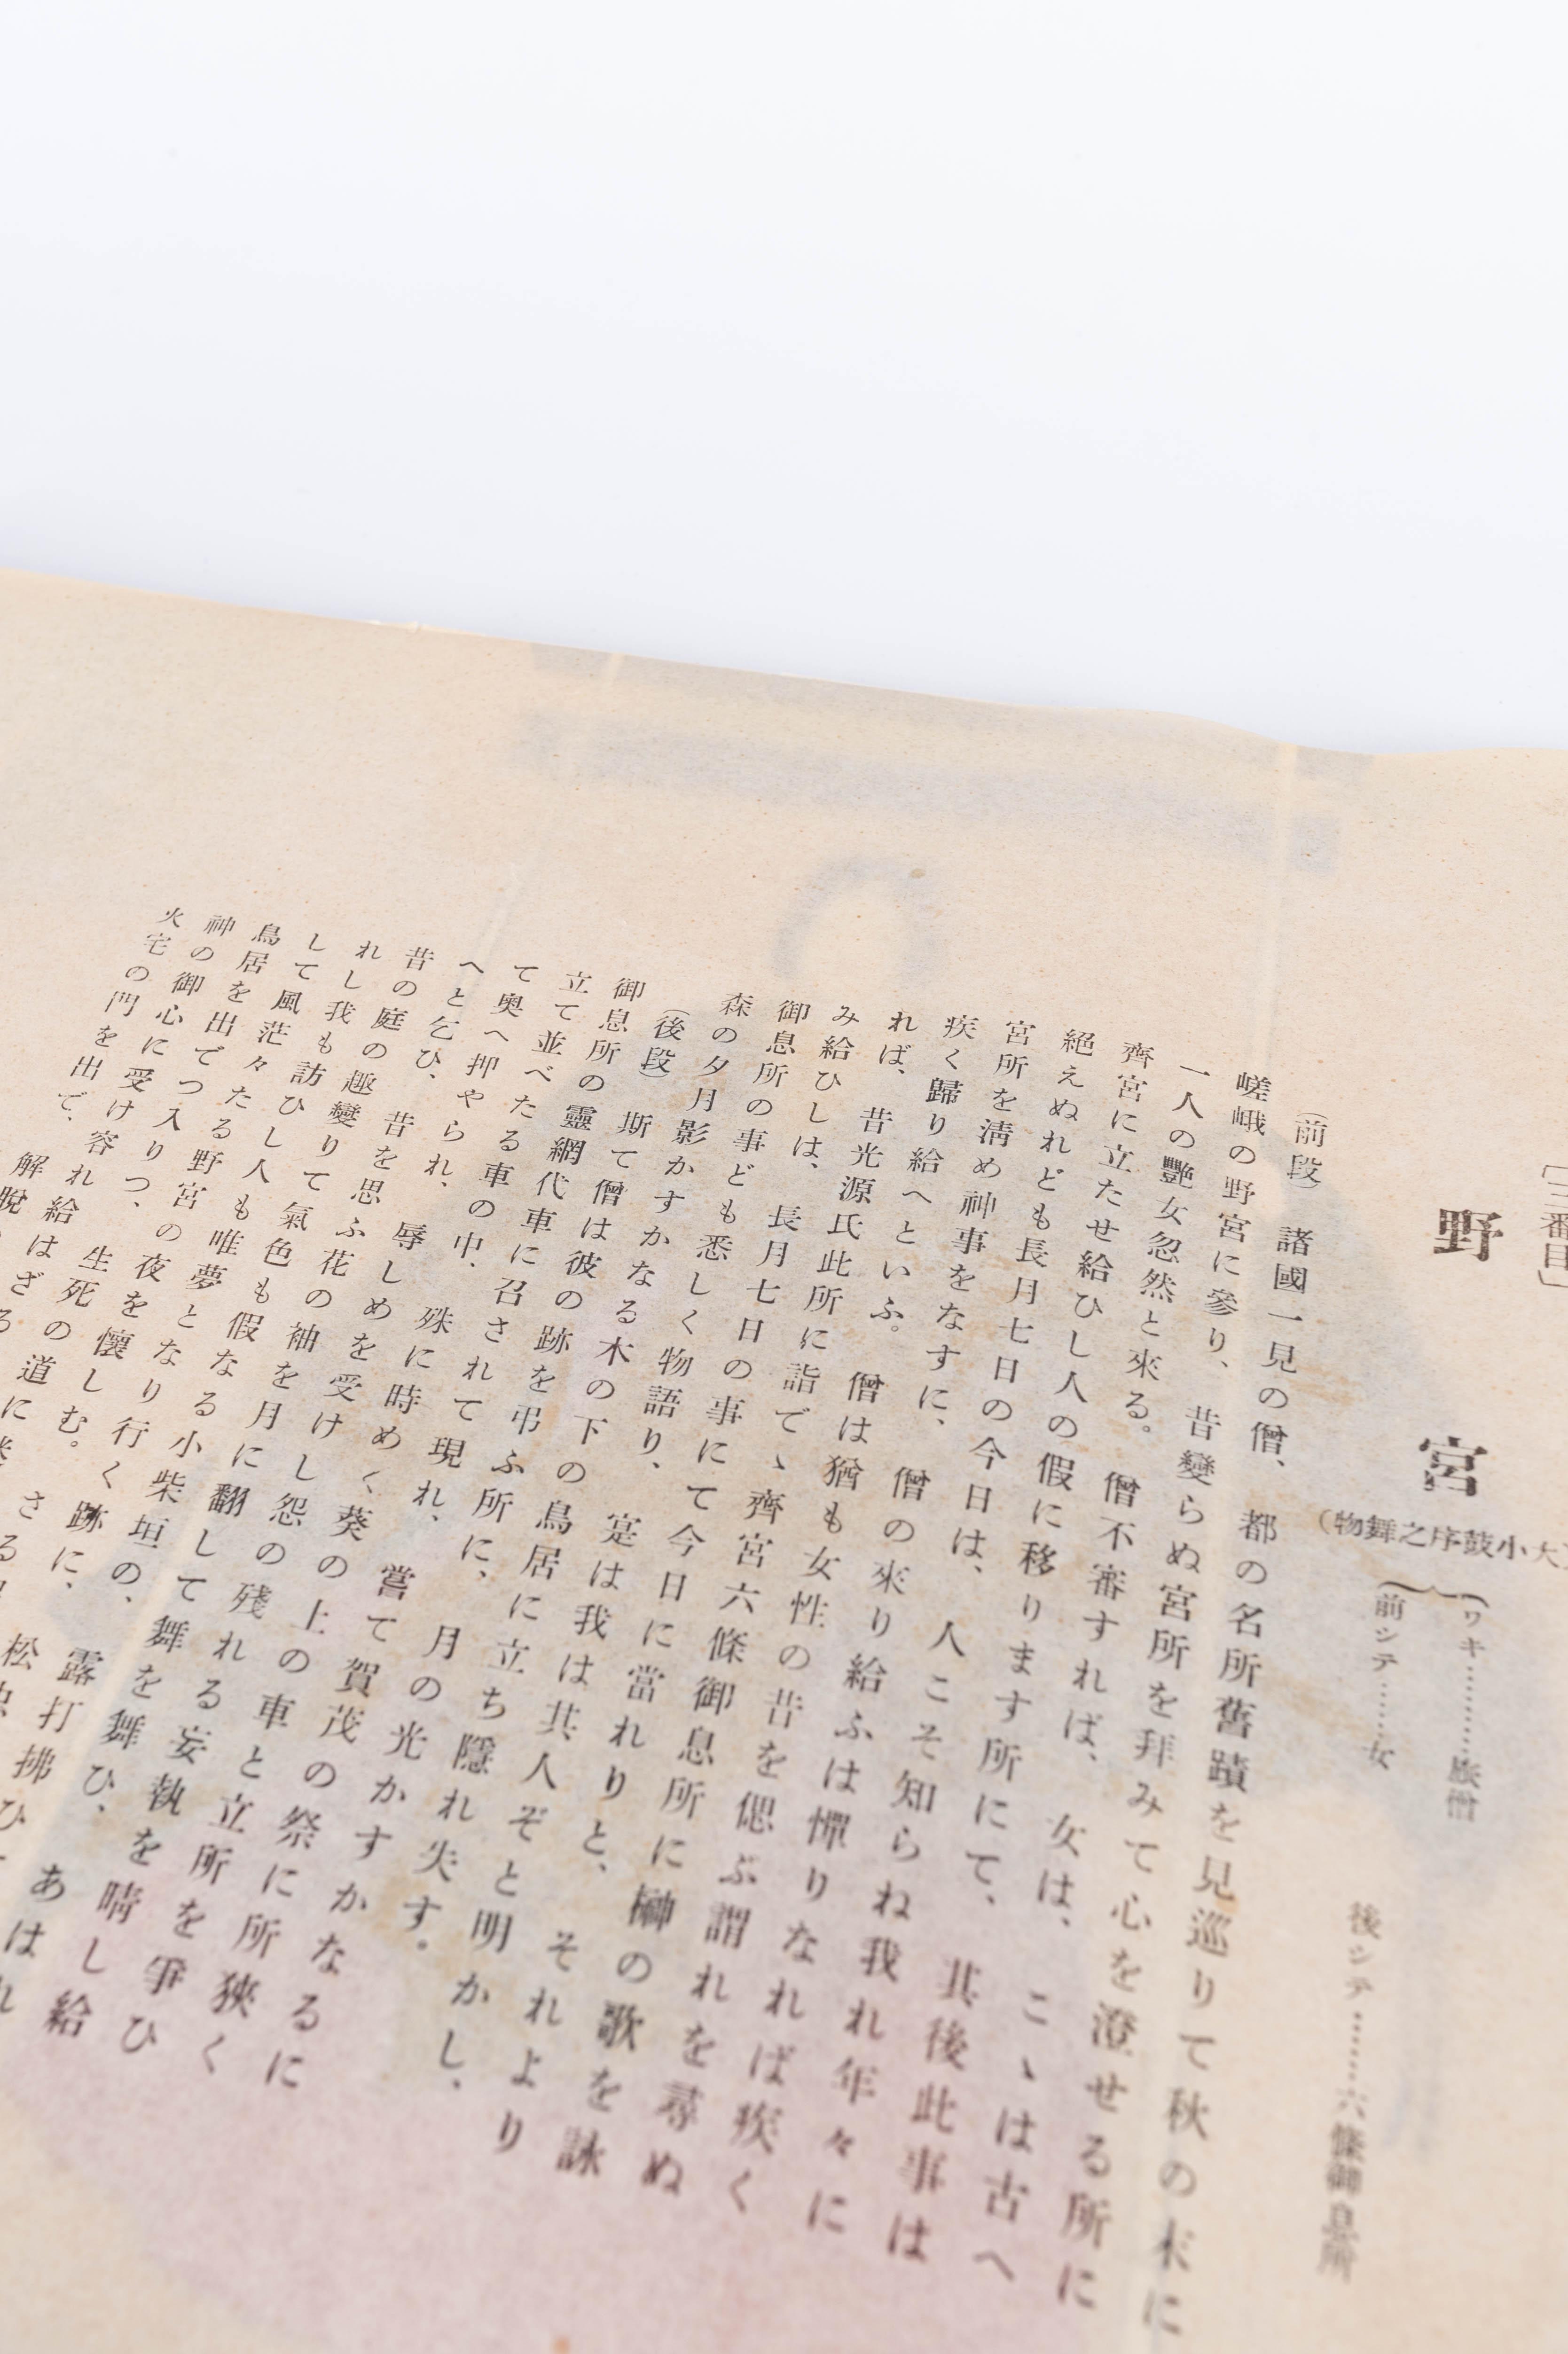 ［三番目］
野宮
（大小鼓序之舞物）
ワキ…………旅僧
前シテ……女
後シテ………六條御息所
（前段）　諸國一見の僧、　都の名所舊蹟を見巡りて秋の末に
嵯峨の野宮に參り、　昔變らぬ宮所を拜みて心を澄せる所に
一人の艷女忽然と來る。　僧不審すれば、　女は、　こゝは古へ
齊宮に立たせ給ひし人の假に移ります所にて、　其後此事は
絕えぬれども長月七日の今日は、　人こそ知らね我れ年々に
宮所を淸め神事をなすに、　僧の來り給ふは憚りなれば疾く
疾く歸り給へといふ。　僧は猶も女性の昔を偲ぶ謂れを尋ぬ
れば、　昔光源氏此所に詣でゝ齊宮六條御息所に榊の歌を詠
み給ひしは、　長月七日の事にて今日に當れりと、　それより
御息所の事ども悉しく物語り、　寔は我は其人ぞと明かし、
森の夕月影かすかなる木の下の鳥居に立ち隱れ失す。
（後段）　斯て僧は彼の跡を弔ふ所に、　月の光かすかなるに
御息所の靈網代車に召されて現れ、　嘗て賀茂の祭に所狹く
立て並べたる車の中、　殊に時めく葵の上の車と立所を爭ひ
て奧へ押やられ、　辱しめを受けし怨の殘れる妄執を晴し給
へと乞ひ、　昔を思ふ花の袖を月に翻して舞を舞ひ、　あはれ
昔の庭の趣變りて氣色も假なる小柴垣の、　露打拂ひ
れし我も訪ひし人も唯夢となり行く跡に、　松
して風茫々たる野宮の夜を懷しむ。　さる
鳥居を出でつ入りつ、　生死の道に
神の御心に受け容れ給はざる
火宅の門を出で、　解脫